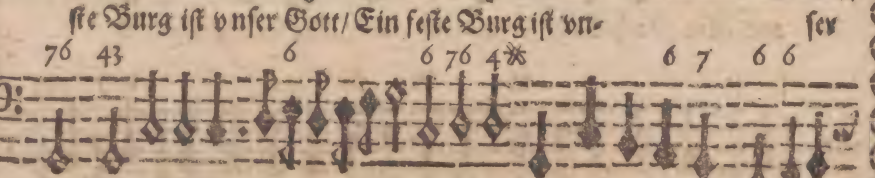 ste Burg ist vnser Gott/ Ein feste Burg ist vn- ser
76 43 6 6 76 4※ 6 7 6 6